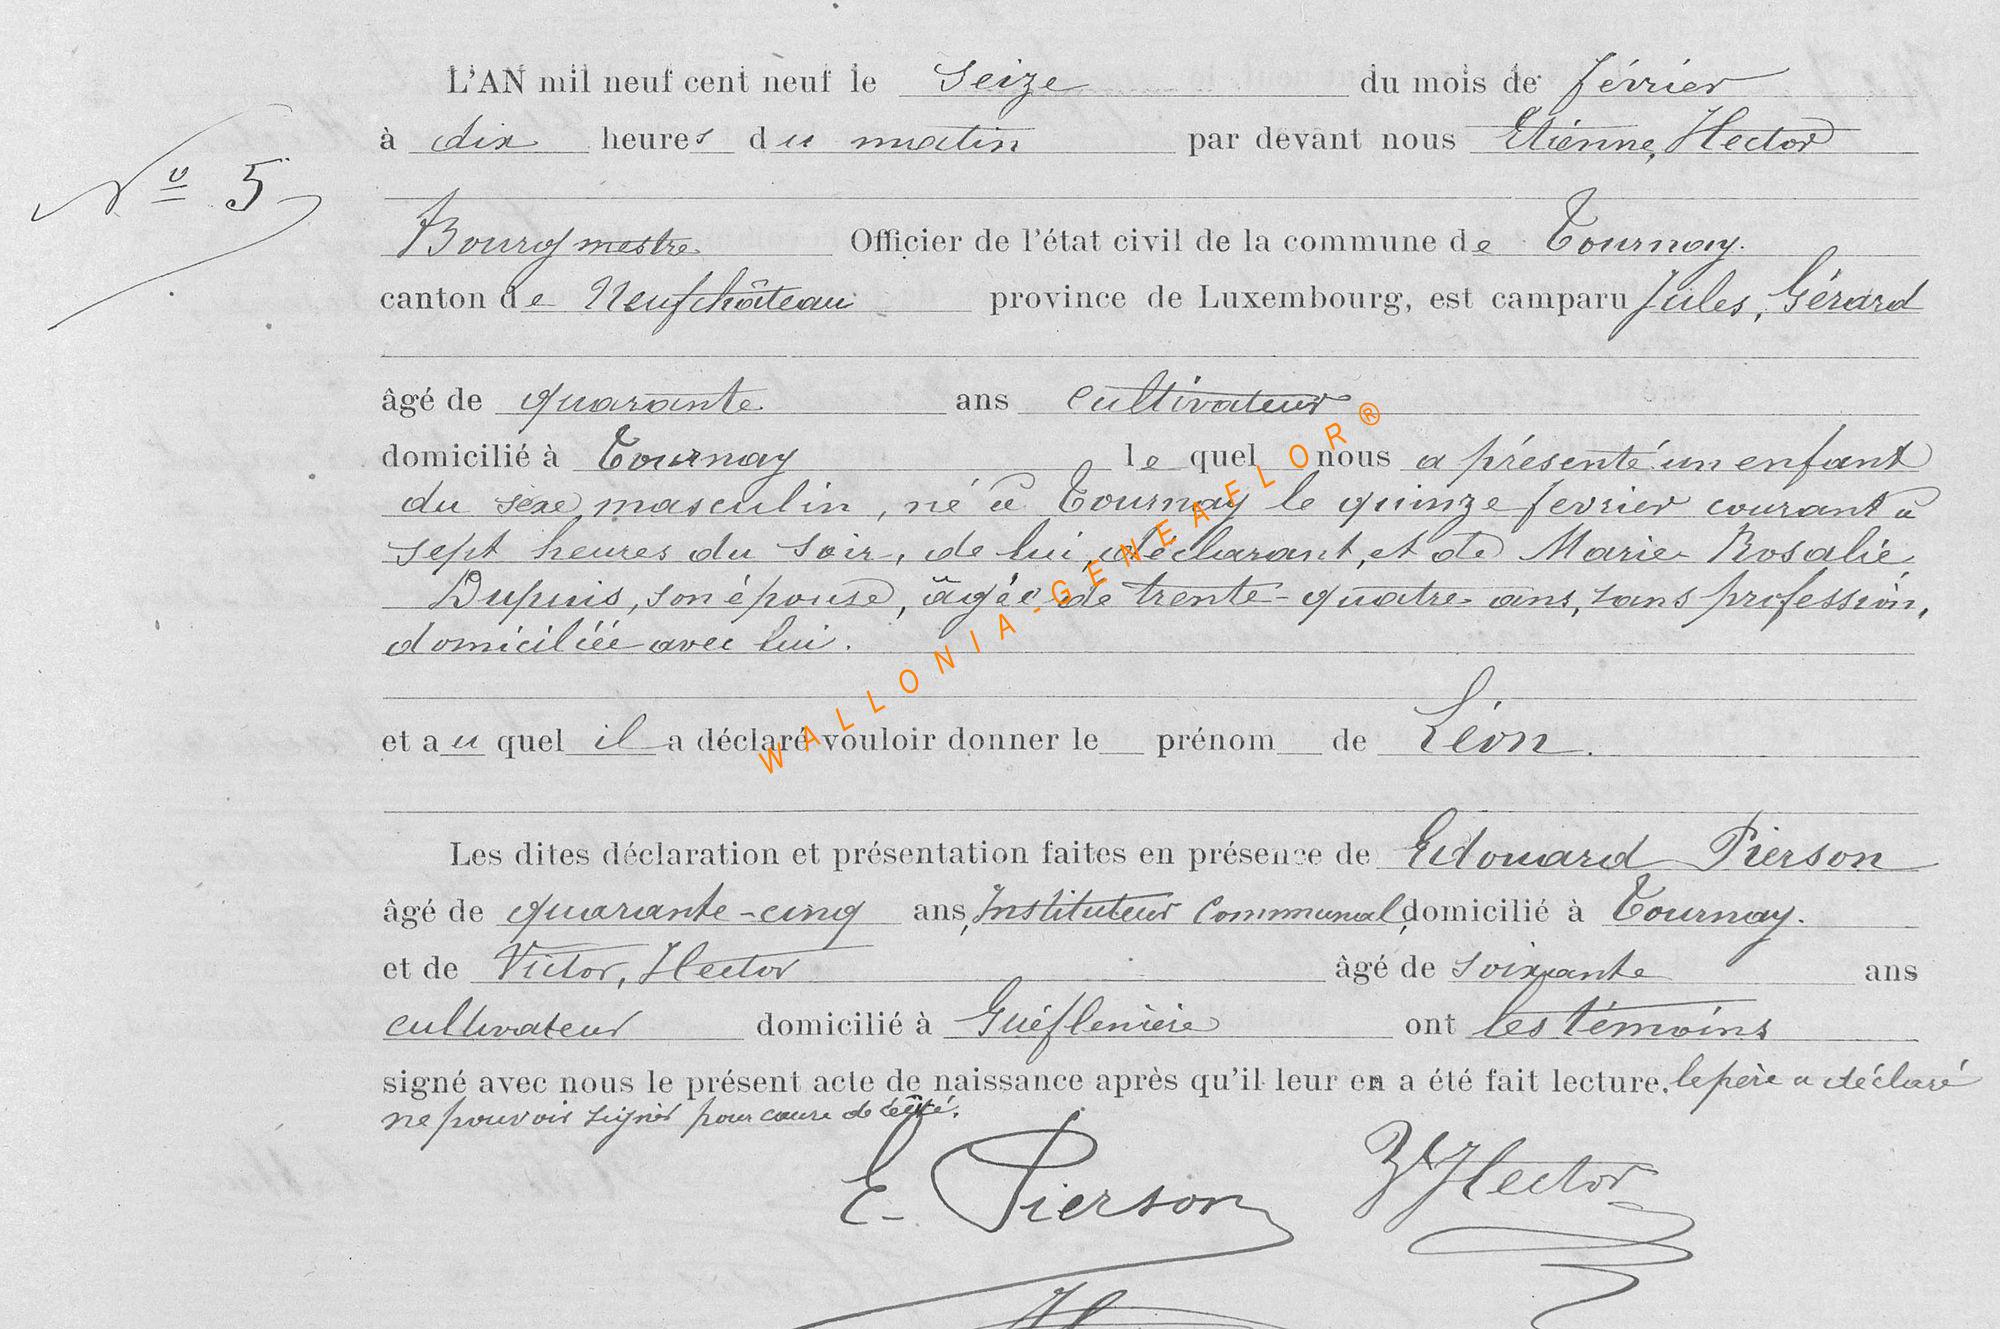 L'AN mil neuf cent neuf le seize du mois de février
à dix heures du matin par devant nous Etienne, Hector
Nº 5
Bourgmestre Officier de l'état civil de la commune de Tournay.
canton de Neufchâteau province de Luxembourg, est camparu Jules, Gérard
âgé de quarante ans cultivateur
domicilié à Tournay le quel nous a présenté un enfant
du sexe masculin, né à Tournay le quinze fevrier courant à
sept heures du soir, de lui déclarant, et de Marie Rosalie
Dupuis, son épouse, âgée de trente-quatre ans, sans profession,
domiciliée avec lui.
et au quel il a déclaré vouloir donner le prénom de Léon.
Les dites déclaration et présentation faites en présence de Edouard Pierson
âgé de quarante-cinq ans, Instituteur Communal, domicilié à Tournay.
et de Victor, Hector âgé de soixante ans
cultivateur domicilié à ont les témoins
signé avec nous le présent acte de naissance après qu'il leur en a été fait lecture. le père a déclaré
ne pouvoir signer pour cause de cécité.
E. Pierson
V Hector
WALLONIA-GENEAFLOR®